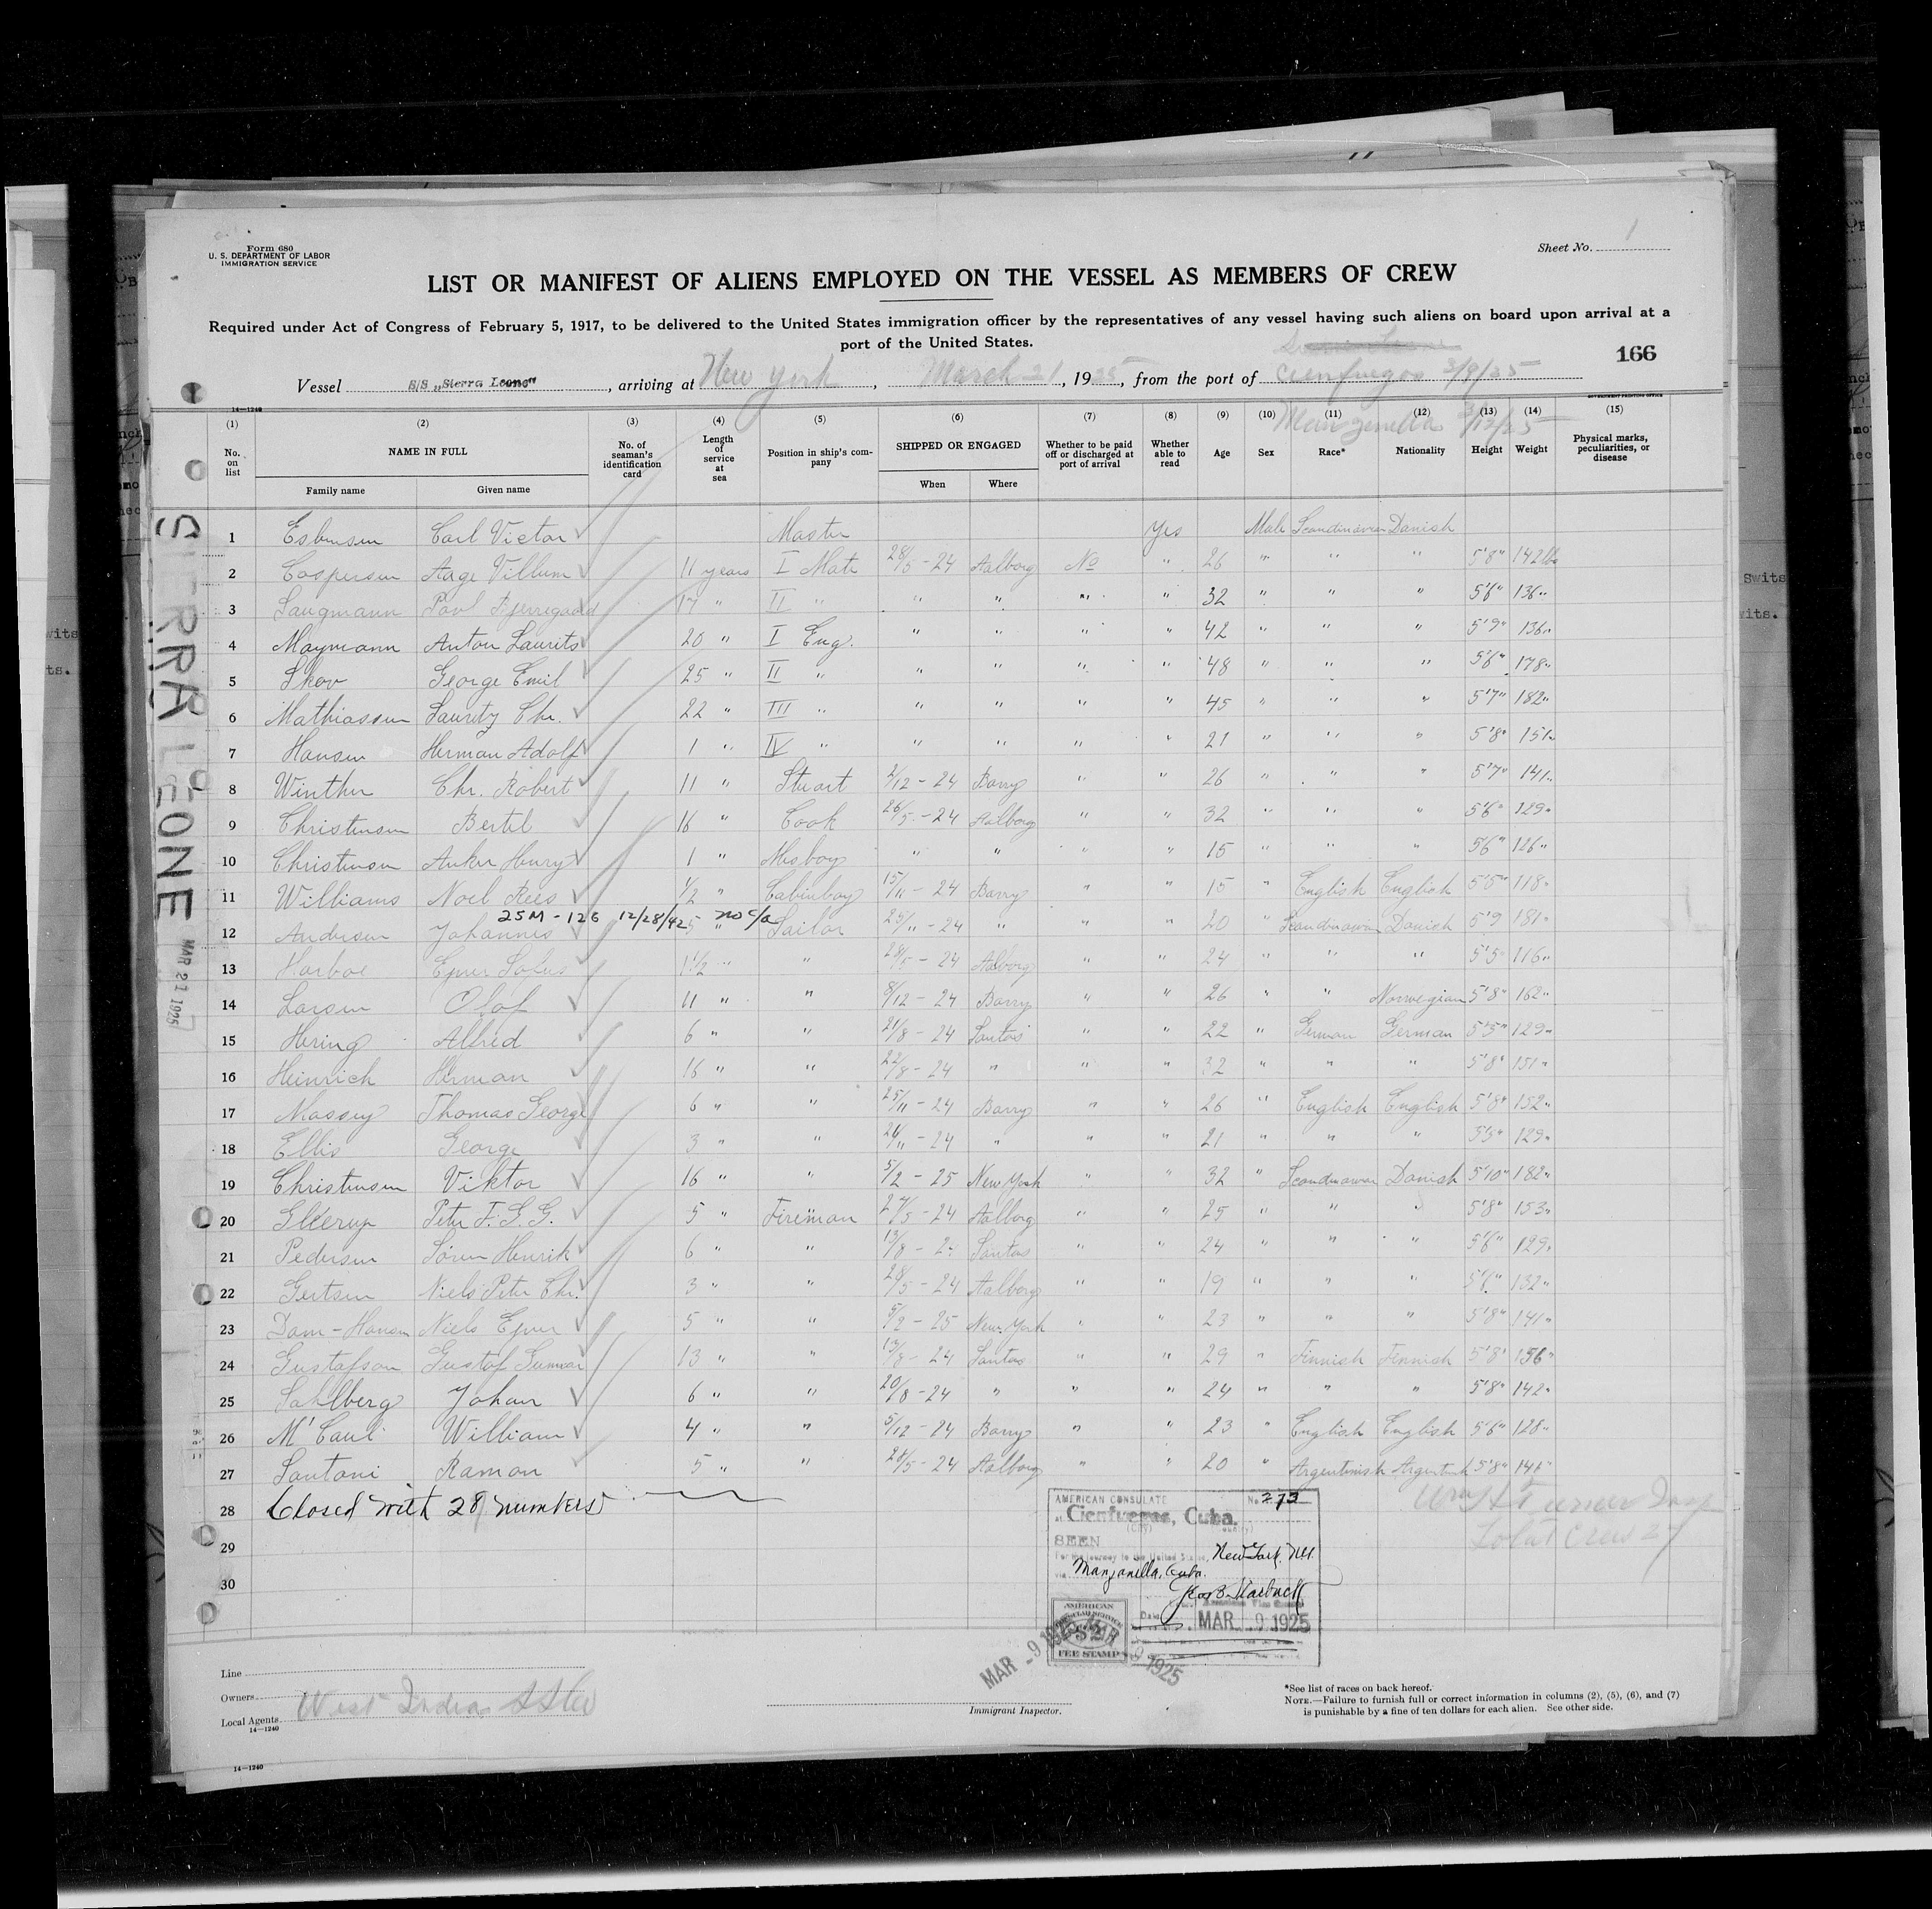 Form 680
U. S. DEPARTMENT OF LABOR
IMMIGRATION SERVICE
Sheet No. 1
LIST OR MANIFEST OF ALIENS EMPLOYED ON THE VESSEL AS MEMBERS OF CREW
Required under Act of Congress of February 5, 1917, to be delivered to the United States immigration officer by the representatives of any vessel having such aliens on board upon arrival at a
port of the United States.
166
Vessel S/S "Sierra Leone", arriving at New York, March 21, 1925, from the port of Cienfuegos 3/9/25
Manzanilla 3/12/25
14—1240
GOVERNMENT PRINTING OFFICE
(1) (2) (3) (4) (5) (6) (7) (8) (9) (10) (11) (12) (13) (14) (15)
No. on list NAME IN FULL No. of seaman's identification card Length of service at sea Position in ship's company SHIPPED OR ENGAGED Whether to be paid off or discharged at port of arrival Whether able to read Age Sex Race* Nationality Height Weight Physical marks, peculiarities, or disease
Family name Given name When Where
1 Esbensen Carl Victor Master Yes Male Scandinavian Danish
2 Caspersen Aage Villum 11 years I Mate 28/5 - 24 Aalborg No " 26 " " " 5'8" 142 lbs
3 Laugmann Povl Bjerregaard 17 " II " " " " " 32 " " " 5'6" 136 "
4 Moymann Anton Laurits 20 " I Eng. " " " " 42 " " " 5'9" 136 "
5 Skov George Emil 25 " II " " " " " 48 " " " 5'6" 178 "
6 Mathiassen Lauritz Chr. 22 " III " " " " " 45 " " " 5'7" 182 "
7 Hansen Herman Adolf 1 " IV " " " " " 21 " " " 5'8" 151 "
8 Winther Chr. Robert 11 " Stuart 2/12 - 24 Barry " " 26 " " " 5'7" 141 "
9 Christensen Bertel 16 " Cook 26/5 - 24 Aalborg " " 32 " " " 5'6" 129 "
10 Christensen Anker Henry 1 " Mesboy " " " " 15 " " " 5'6" 126 "
11 Williams Noel Rees 1/2 " Cabinboy 15/11 - 24 Barry " " 15 " English English 5'5" 118 "
25M - 126 12/28/42 no c/a
12 Andersen Johannes 5 " Sailor 25/11 - 24 " " " 20 " Scandinavian Danish 5'9 181 "
13 Harboe Ejner Sofus 1 1/2 " " 28/5 - 24 Aalborg " " 24 " " " 5'5" 116 "
14 Larsen Olof 11 " " 8/12 - 24 Barry " " 26 " " Norwegian 5'8" 162 "
15 Hering Alfred 6 " " 21/8 - 24 Santos " " 22 " German German 5'5" 129 "
16 Heinrich Herman 16 " " 22/8 - 24 " " " 32 " " " 5'8" 151 "
17 Massey Thomas George 6 " " 25/11 - 24 Barry " " 26 " English English 5'8" 152 "
18 Ellis George 3 " " 24/11 - 24 " " " 21 " " " 5'5" 129 "
19 Christensen Viktor 16 " " 5/2 - 25 New York " " 32 " Scandinavian Danish 5'10" 182 "
20 Glerup Peter F. S. G. 5 " Fireman 27/5 - 24 Aalborg " " 25 " " " 5'8" 153 "
21 Pedersen Søren Henrik 6 " " 13/8 - 24 Santos " " 24 " " " 5'6" 129 "
22 Gertsen Niels Peter Chr. 3 " " 28/5 - 24 Aalborg " " 19 " " " 5'6" 132 "
23 Dam-Hansen Niels Ejner 5 " " 5/2 - 25 New York " " 23 " " " 5'8" 141 "
24 Gustafson Gustaf Gunnar 13 " " 13/8 - 24 Santos " " 29 " Finnish Finnish 5'8" 156 "
25 Sahlberg Johan 6 " " 20/8 - 24 " " " 24 " " " 5'8" 142 "
26 Mc Caul William 4 " " 5/12 - 24 Barry " " 23 " English English 5'6" 128 "
27 Santoni Ramon 5 " " 28/5 - 24 Aalborg " " 20 " Argentinish Argentinish 5'8" 141 "
28 Closed with 28 numbers
29
30
SIERRA LEONE MAR 21 1925
Total Crew 27
AMERICAN CONSULATE No. 273
at Cienfuegos, Cuba.
(City) (Country)
SEEN
For the journey to the United States, New York, N.Y.
via Manzanilla, Cuba.
American Vice Consul
Date MAR 9 1925
AMERICAN CONSULAR SERVICE $2 FEE STAMP
MAR 9 1925
MAR 9 1925
Line
Owners
Local Agents West India SS Co
14—1240
Immigrant Inspector.
*See list of races on back hereof.
NOTE.—Failure to furnish full or correct information in columns (2), (5), (6), and (7)
is punishable by a fine of ten dollars for each alien. See other side.
14—1240